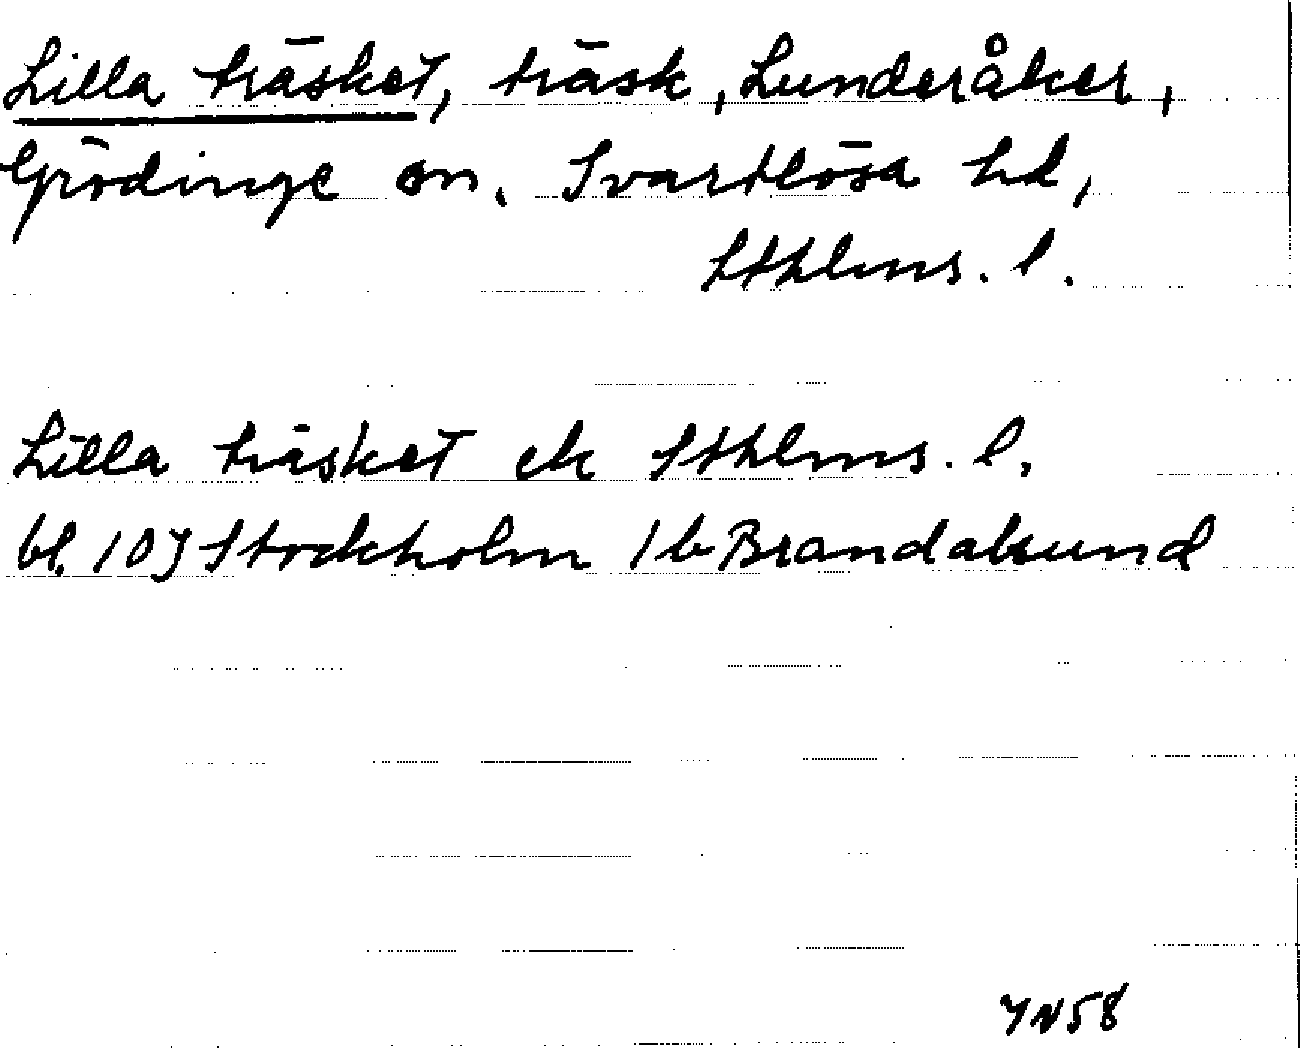 Lilla träsket, träsk, Lunderåker,
Grödinge sn. Svartlösa hd,
Sthlms. l.
Lilla träsket ek Sthlms. l.
bl. 10J Stockholm 1b Brandalsund
YN58